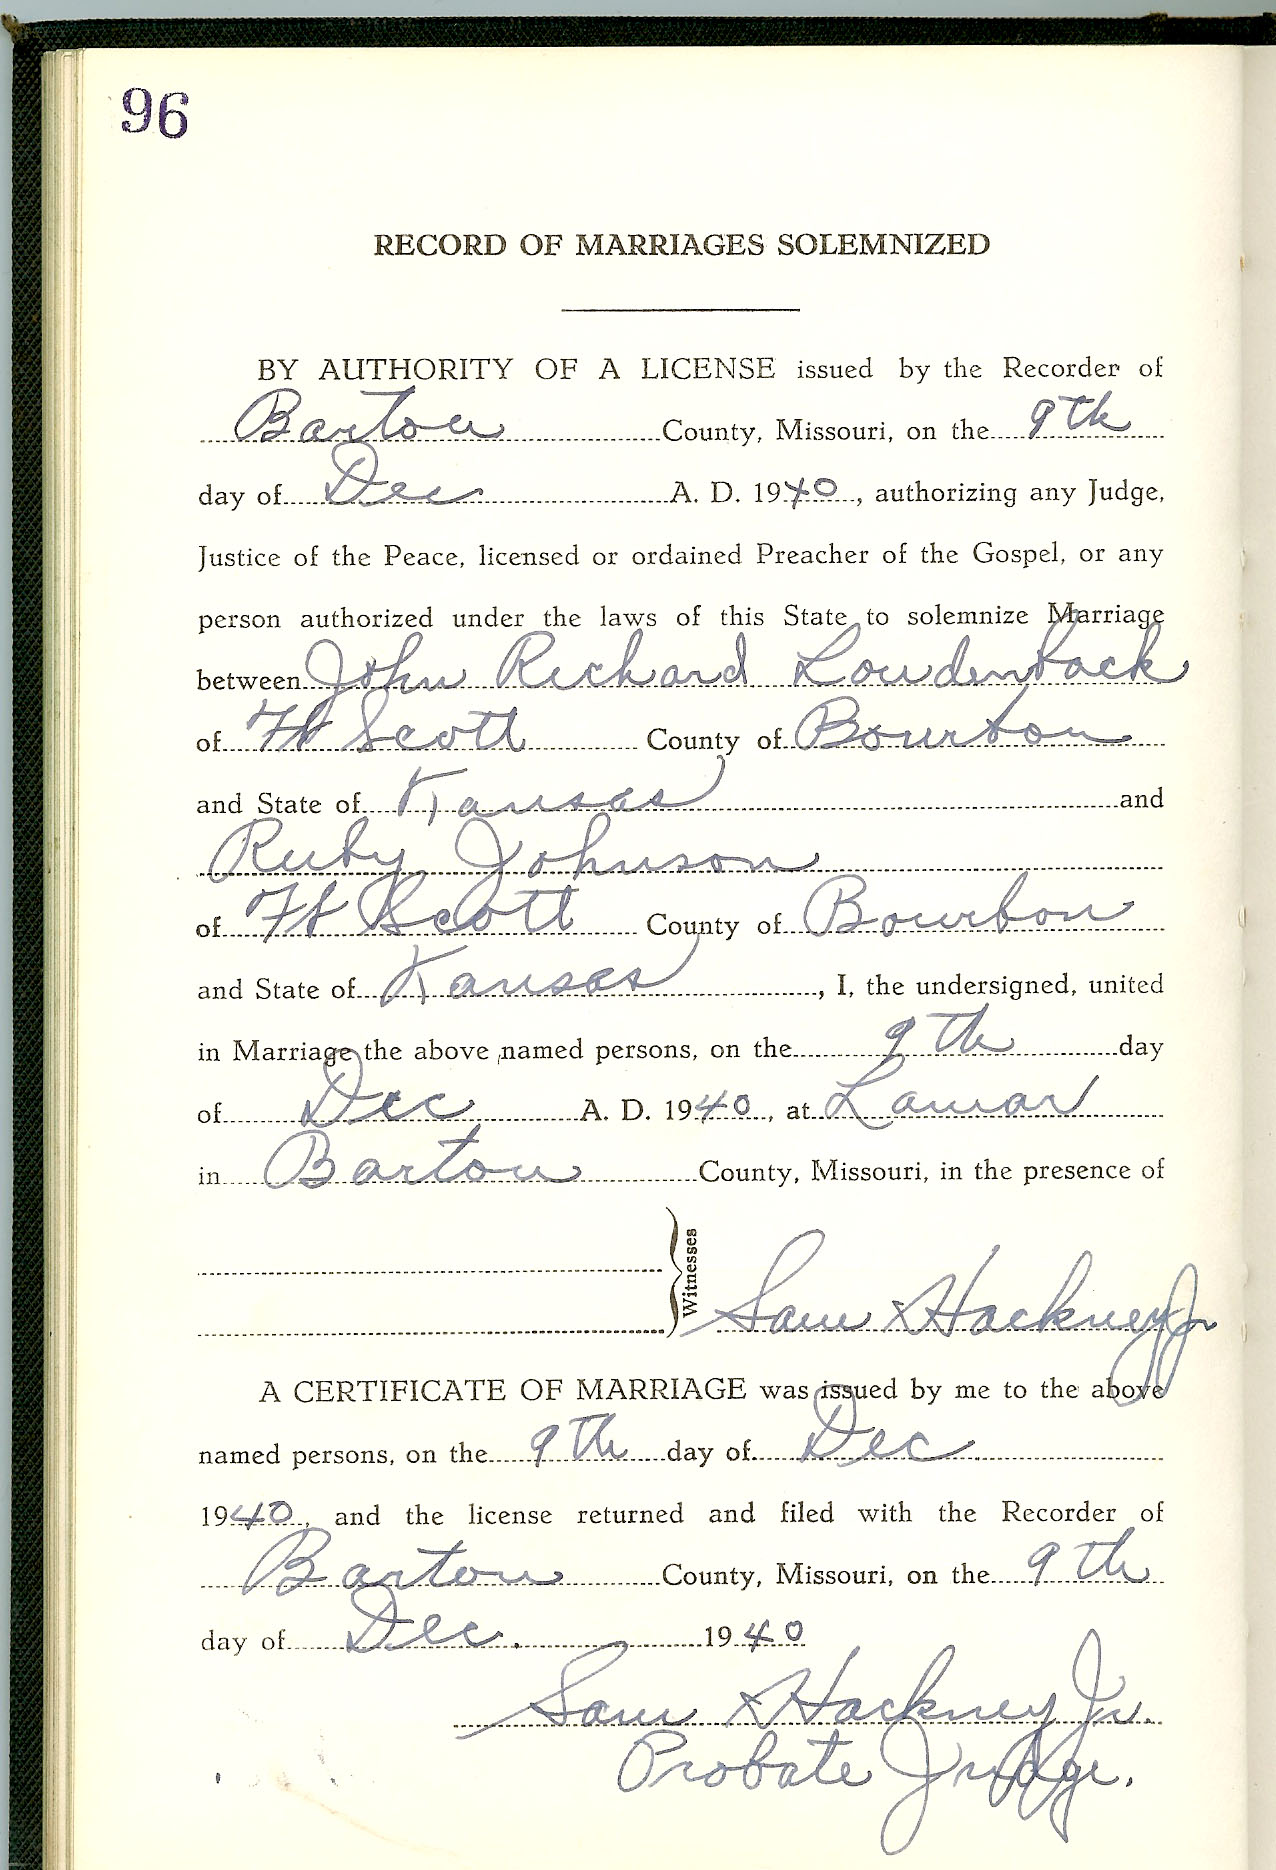 96
RECORD OF MARRIAGES SOLEMNIZED
BY AUTHORITY OF A LICENSE issued by the Recorder of
Barton County, Missouri, on the 9th
day of Dec. A. D. 1940, authorizing any Judge,
Justice of the Peace, licensed or ordained Preacher of the Gospel, or any
person authorized under the laws of this State to solemnize Marriage
between John Richard Loudenback
of Ft Scott County of Bourbon
and State of Kansas and
Ruby Johnson
of Ft Scott County of Bourbon
and State of Kansas, I, the undersigned, united
in Marriage the above named persons, on the 9th day
of Dec A. D. 1940, at Lamar
in Barton County, Missouri, in the presence of
Witnesses
Sam Hackney Jr
A CERTIFICATE OF MARRIAGE was issued by me to the above
named persons, on the 9th day of Dec
1940, and the license returned and filed with the Recorder of
Barton County, Missouri, on the 9th
day of Dec. 1940
Sam Hackney Jr.
Probate Judge.